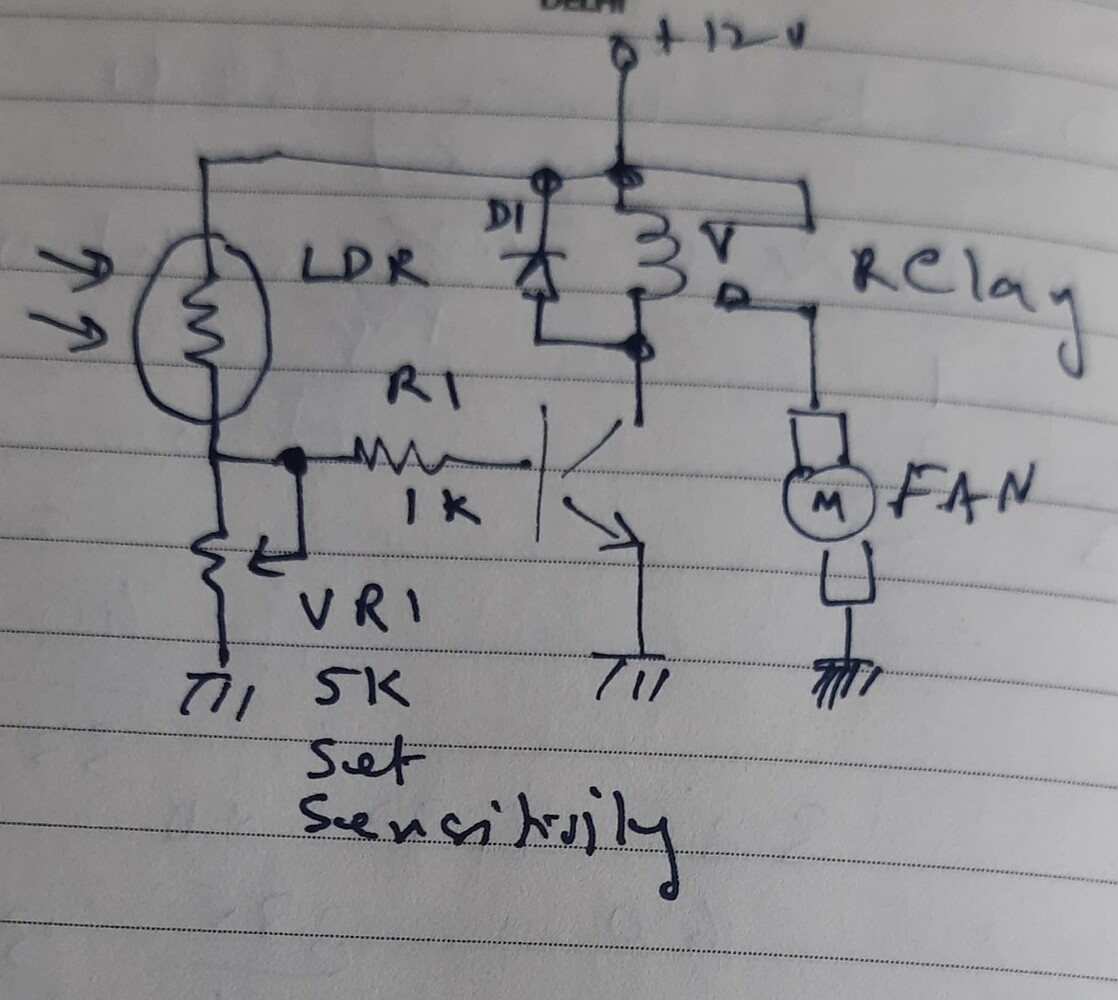 DELHI
+ 12 v
D1
LDR
Relay
R1
1K
M
FAN
VR1
5K
Set
Sensitivity